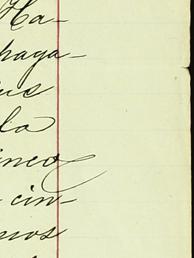 Ha-
paga-
us
la
inco
cin-
mos